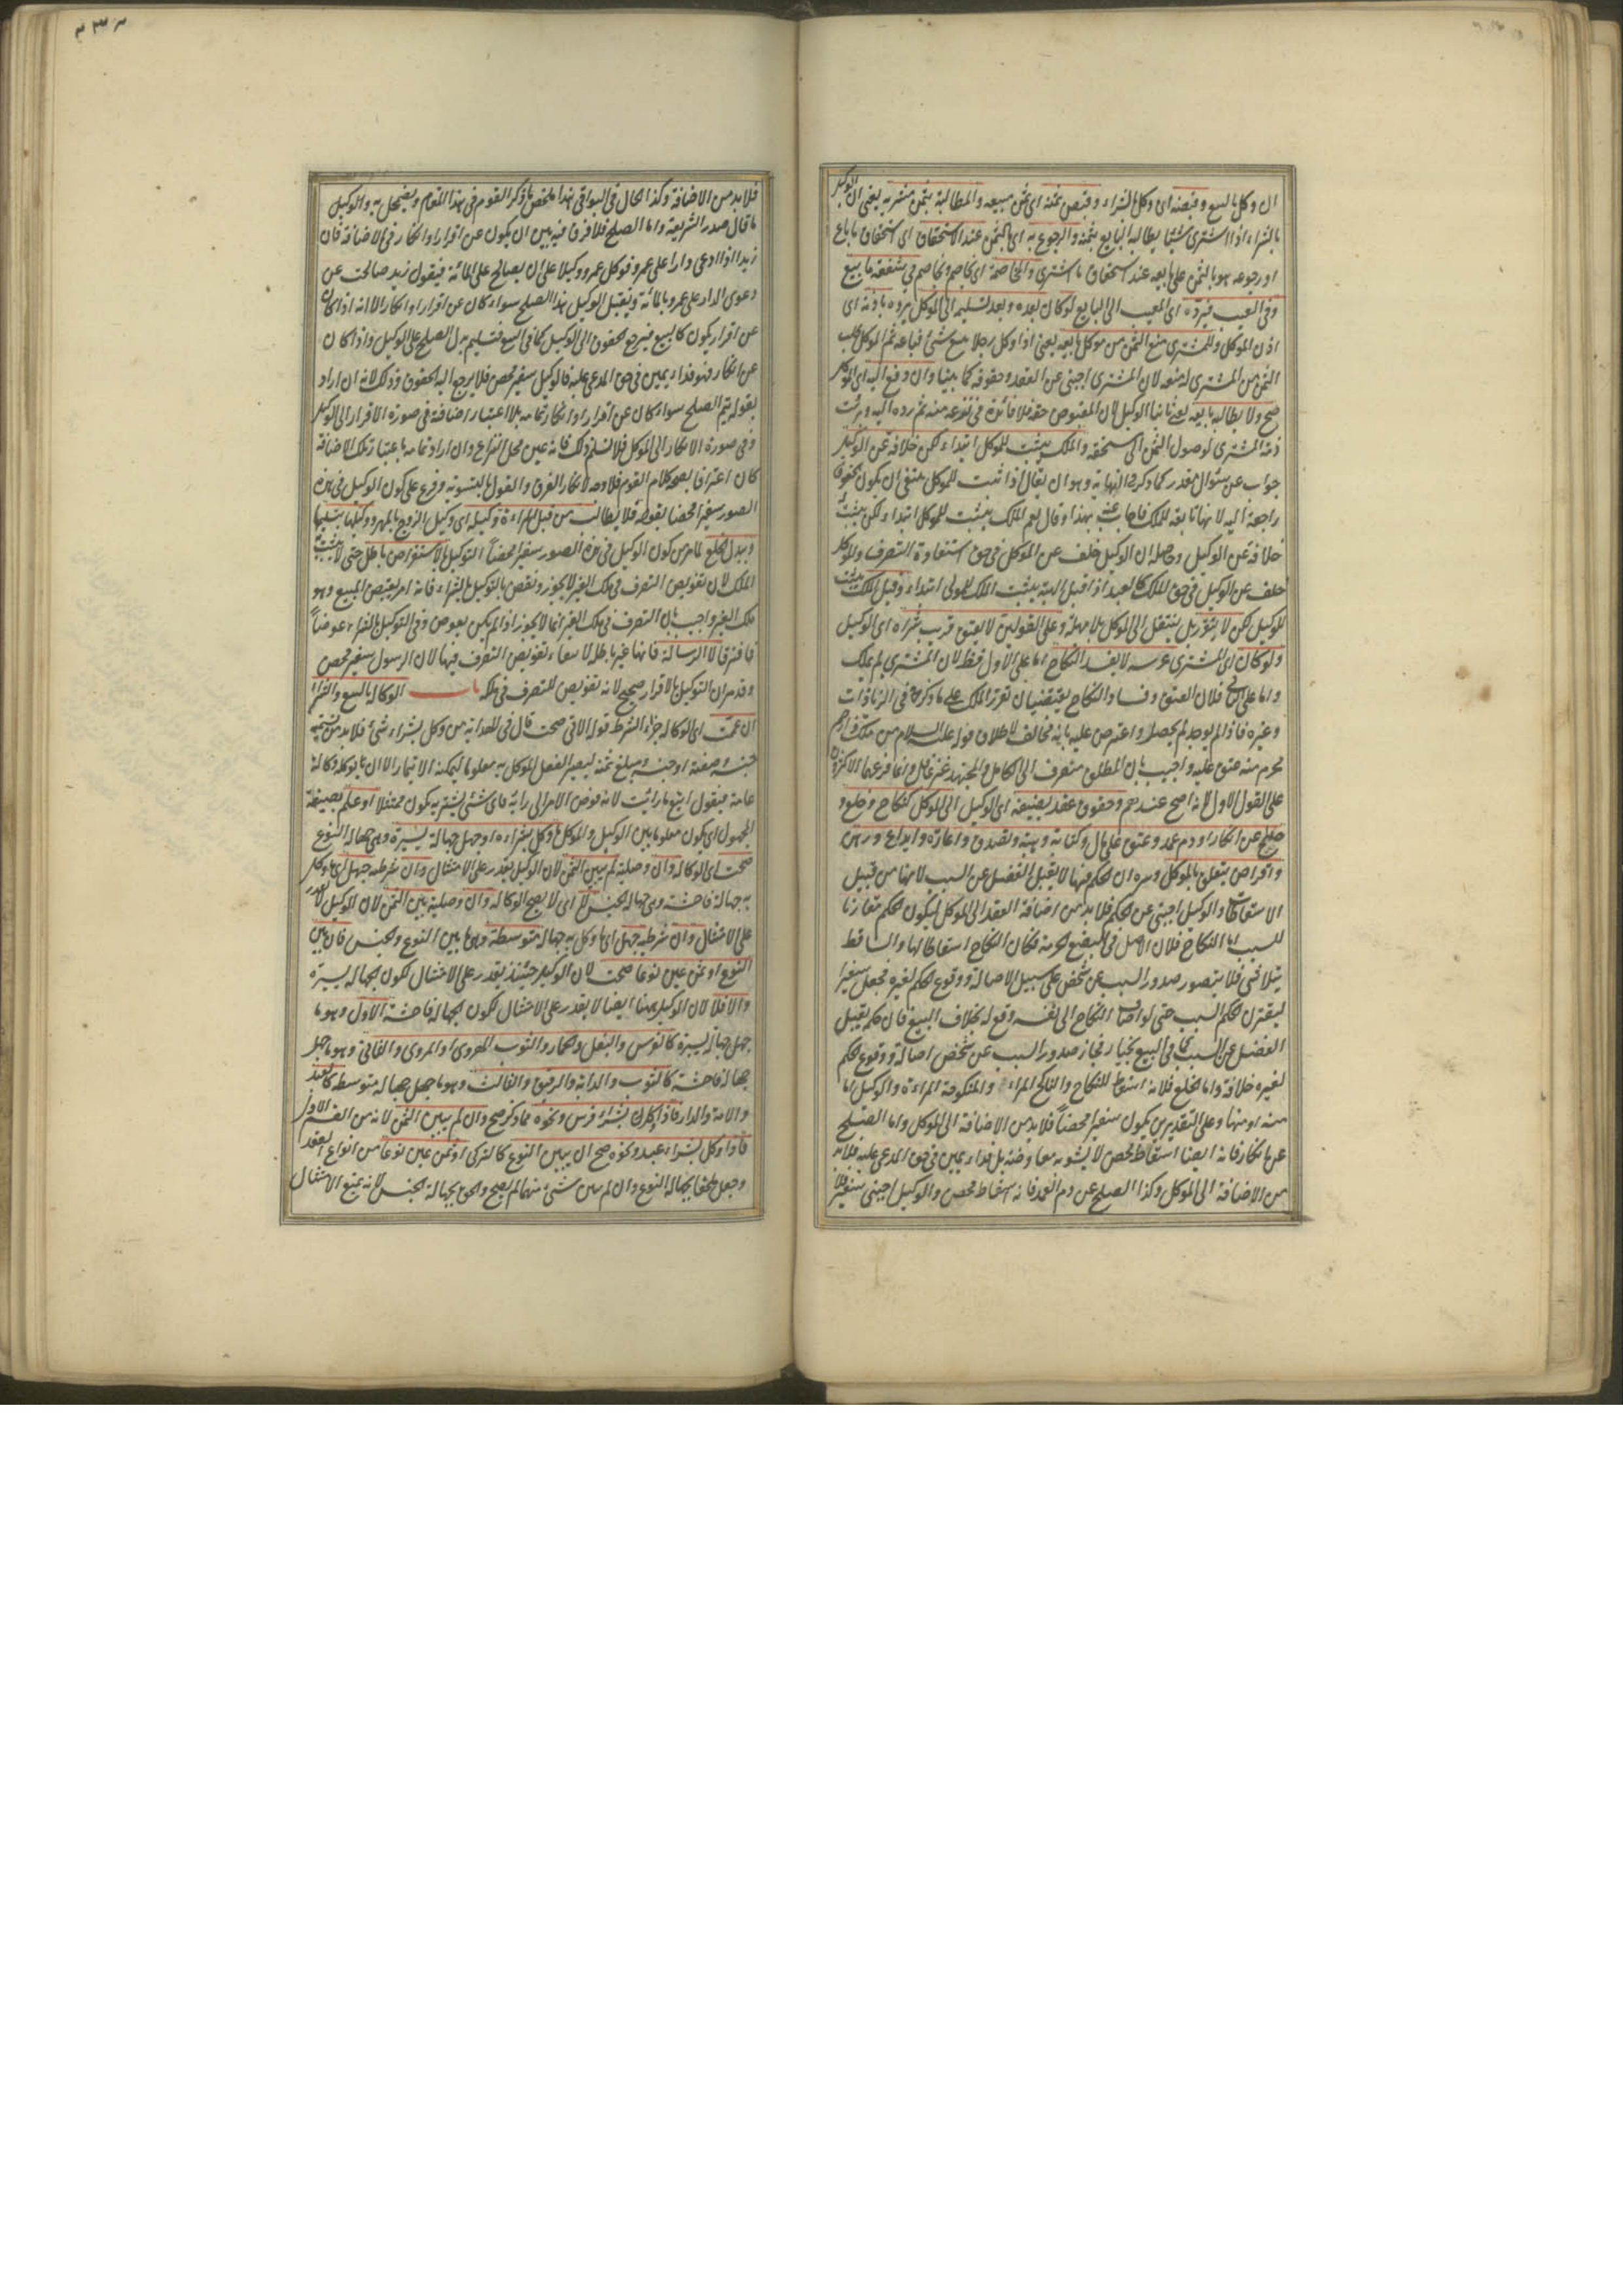 ان وكل بالبيع وقبضه اى وكل الشراء وقبض ثمنه اى ثمن مبيعه والمطالبة بثمن مشريه يعنى ان الوكيل
بالشراء اذا اشترى شيئا يطالبه البايع بثمنه والرجوع به اى بالثمن عند الاستحقاق اى استحقاق ما باع
او رجوعه هو بالثمن على بايعه عند استحقاق ما اشترى والمخاصمة اى يخاصم ويخاصم فى شفعة ما بيع
وفى العيب فيرده اى المعيب الى البايع لو كان بيده وبعد تسليمه الى الموكل يرده باذنه اى
اذن الموكل وللمشترى منع الثمن من موكل بايعه يعنى اذا وكل رجلا ببيع شئ فباعه ثم الموكل طلب
الثمن من المشترى له منعه لان المشترى اجنبى عن العقد وحقوقه كما بينا وان دفع اليه اى الموكل
صح ولا يطالبه بايعه يعنى ثانيا الوكيل لان المقبوض حقه فلا فائدة فى نزعه منه ثم رده اليه وبرئت
ذمة المشترى لوصول الثمن الى مستحقه والملك يثبت للموكل ابتداء لكن خلافة عن الوكيل
جواب عن سئوال مقدر كما ذكر فى النهاية وهو ان يقال اذا ثبت للموكل ينبغى ان يكون الحقوق
راجعة اليه لانها تابعة للملك فاجاب عنه بهذا وقال نعم الملك يثبت للموكل ابتداء لكن يثبت
خلافة عن الوكيل وحاصله ان الوكيل خلف عن الموكل فى حق استفادة التصرف والموكل
خلف عن الوكيل فى حق الملك كالعبد اذا قبل الهبة يثبت الملك للمولى ابتداء وقيل الملك يثبت
للوكيل لكن لا يتقرر بل ينتقل الى الموكل بلا مهلة وعلى القولين لا يعتق قريب شراه اى الوكيل
ولو كان اى المشترى عرسه لا يفسد النكاح اما على الاول فظ لان المشترى لم يملك
واما على الثانى فلان العتق وفساد النكاح يقتضيان تقرر الملك على ما ذكر فى الزيادات
وغيره فاذا لم يوجد لم يحصلا واعترض عليه بانه مخالف لاطلاق قوله عليه السلام من ملك ذا رحم
محرم منه عتق عليه واجيب بان المطلق منصرف الى الكامل والمجتهد غير غافل وانما فرعهما الاكثرون
على القول الاول لانه اصح عندهم وحقوق عقد يضيفه اى الوكيل الى الموكل كنكاح وخلع و
صلح عن انكار او دم عمد وعتق على مال وكتابة وهبة وتصدق واعارة وايداع ورهن
واقراض يتعلق بالموكل وسره ان الحكم فيها لا يقبل الفصل عن السبب لانها من قبيل
الاسقاطات والوكيل اجنبى عن الحكم فلا بد من اضافة العقد الى الموكل ليكون الحكم مقارنا
للسبب اما النكاح فلان الاصل فى البضع الحرمة فكان النكاح اسقاطا لها والساقط
يتلاشى فلا يتصور صدور السبب عن شخص على سبيل الاصالة ووقوع الحكم لغيره فجعل سفيرا
ليقترن الحكم السبب حتى لو اضاف النكاح الى نفسه وقع له بخلاف البيع فان حكمه يقبل
الفصل عن السبب كما فى البيع بخيار فجاز صدور السبب عن شخص اصالة ووقوع الحكم
لغيره خلافة واما الخلع فلانه اسقاط للنكاح والناكح المراء والمنكوحة المراءة والوكيل اما
منه او منها وعلى التقديرين يكون سفيرا محضا فلا بد من الاضافة الى الموكل واما الصلح
عن انكار فانه ايضا اسقاط محض لا يشوبه معاوضة بل فداء يمين فى حق المدعى عليه فلا بد
من الاضافة الى الموكل وكذا الصلح عن دم العمد فانه اسقاط محض والوكيل اجنبى سفير
فلا بد من الاضافة وكذا الحال فى البواقى هذا ملخص ما ذكر القوم فى هذا المقام ويضمحل به
ما قال صدر الشريعة واما الصلح فلا فرق فيه بين ان يكون عن اقرار او انكار فى الاضافة فان
زيدا اذا ادعى دارا على عمرو فوكل عمرو وكيلا على ان يصالح على المائة فيقول زيد صالحت عن
دعوى الدار على عمرو بالمائة ويقبل الوكيل هذا الصلح سواء كان عن اقرار او انكار الا انه اذا كان
عن اقرار يكون كالبيع فيرجع الحقوق الى الوكيل كما فى البيع فتسليم بدل الصلح على الوكيل واذا كان
عن انكار فهو فداء يمين فى حق المدعى عليه فالوكيل سفير محض فلا يرجع اليه الحقوق وذلك لانه ان اراد
بقوله يتم الصلح سواء كان عن اقرار او انكار تمامه بلا اعتبار اضافة فى صورة الاقرار الى الوكيل
وفى صورة الانكار الى الموكل فلا نسلم ذلك فانه عين محل النزاع وان اراد تمامه باعتبار تلك الاضافة
كان اعترافا بصحة كلام القوم فلا وجه لانكار الفرق والقول بالتسوية وفرع على كون الوكيل فى هذه
الصور سفيرا محضا بقوله فلا يطالب من قبل المراءة وكيله اى وكيل الزوج بالمهر ووكيلها بتسليمها
وببدل الخلع لما مر من كون الوكيل فى هذه الصور سفيرا محضا التوكيل بالاستقراض باطل حتى لا يثبت
الملك لان تفويض التصرف فى ملك الغير لا يجوز ونقض بالتوكيل بالشراء فانه امر بقبض المبيع وهو
ملك الغير واجيب بان التصرف فى ملك الغير انما لا يجوز اذا لم يكن بعوض وفى التوكيل بالشراء عوضا
فافترقا لا الرسالة فانها غير باطلة لانتفاء تفويض التصرف فيها لان الرسول سفير محض
وقد مر ان التوكيل بالاقرار صحيح لانه تفويض للتصرف فى ملكه باب الوكالة بالبيع والشراء
ان عمت اى الوكالة جزاء الشرط قوله الاتى صحت قال فى الهداية من وكل بشراء شئ فلا بد من تسمية
جنسه وصفته او جنسه ومبلغ ثمنه ليصير الفعل الموكل به معلوما ليمكنه الايتمار الا ان يوكله وكالة
عامة فيقول ابتع ما رايت لانه فوض الامر الى رايه فاى شئ يشتريه يكون ممتثلا او علم بصيغة
المجهول اى يكون معلوما بين الوكيل والموكل ما وكل بشراءه او جهل جهالة يسيرة وهى جهالة النوع
صحت اى الوكالة وان وصلية لم يبين الثمن لان الوكيل يقدر على الامتثال وان شرطية جهل اى ما وكل
به جهالة فاحشة وهى جهالة الجنس لا اى لا يصح الوكالة وان وصلية بين الثمن لان الوكيل لا يقدر
على الامتثال وان شرطية جهل اى ما وكل به جهالة متوسطة وهى ما بين النوع والجنس فان بين
النوع او ثمن عين نوعا صحت لان الوكيل حينئذ يقدر على الامتثال لكون الجهالة يسيرة
والا فلا لان الوكيل ههنا ايضا لا يقدر على الامتثال لكون الجهالة فاحشة الاول وهو ما
جهل جهالة يسيرة كالفرس والبغل والحمار والثوب الهروى او المروى والثانى وهو ما جهل
جهالة فاحشة كالثوب والدابة والرقيق والثالث وهو ما جهل جهالة متوسطة كالعبد
والامة والدار فاذا وكل بشراء فرس ونحوه مما ذكر صح وان لم يبين الثمن لانه من القسم الاول
فاذا وكل بشراء عبد ونحوه صح ان يبين النوع كالتركى او ثمن عين نوعا من انواع العبد
وجعل ملحقا بجهالة النوع وان لم يبين شئ منهما لم يصح والحق بجهالة الجنس لانه يمنع الامتثال